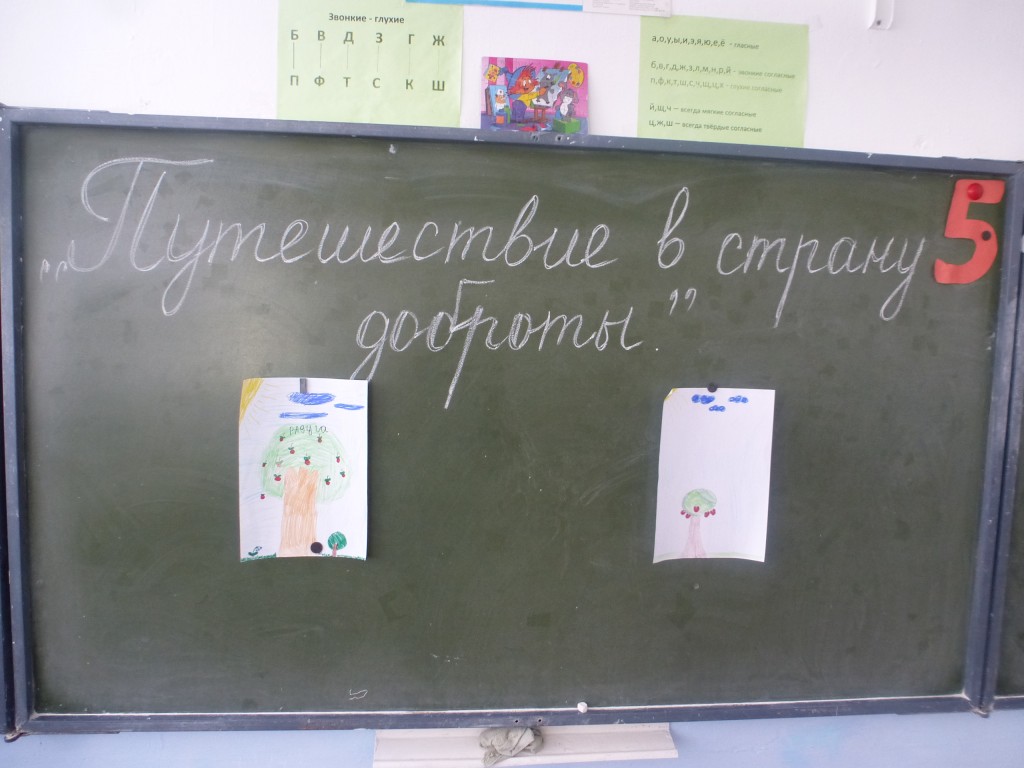 Звонкие - глухие
Б В Д З Г Ж
П Ф Т С К Ш
а,о,у,ы,и,э,я,ю,е,ё - гласные
б,в,г,д,ж,з,л,м,н,р,й - звонкие согласные
п,ф,к,т,ш,с,ч,щ,ц,х - глухие согласные
й,щ,ч – всегда мягкие согласные
ц,ж,ш – всегда твёрдые согласные
„Путешествие в страну
доброты."
5